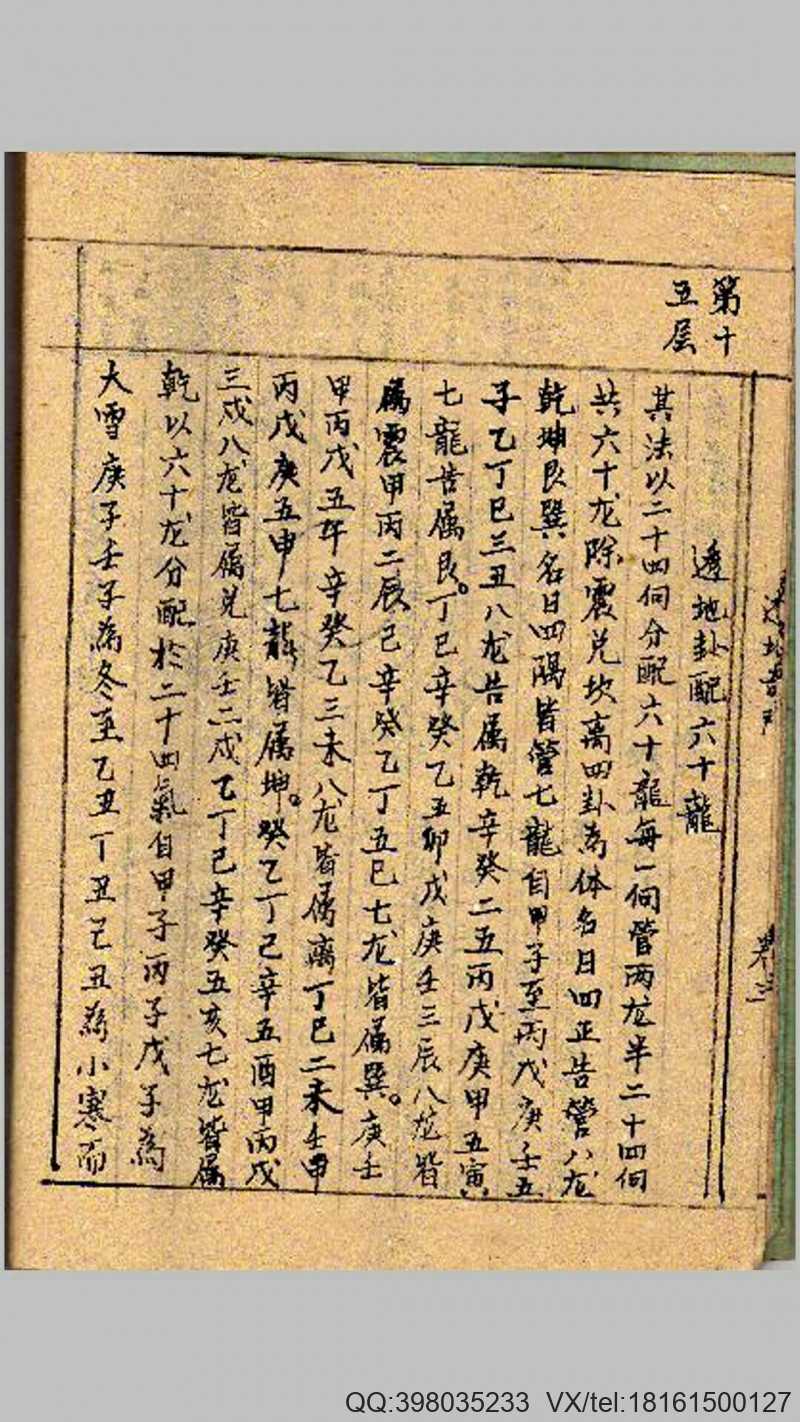 第十
五层
透地卦配六十龍
其法以二十四向分配六十龍每一向管两龙半二十四向
共六十龙除震兑坎离四卦為体名曰四正皆管八龙
乾坤艮巽名曰四隅皆管七龍自甲子至丙戊庚壬五
子乙丁巳三丑八龙皆属乾辛癸二五丙戊庚甲五寅
七龍皆属艮。丁巳辛癸乙五卯戊庚壬三辰八龙皆
属震甲丙二辰己辛癸乙丁五巳七龙皆属巽。庚壬
甲丙戊五午辛癸乙三未八龙皆属离丁巳二未壬甲
丙戊庚五申七龍皆属坤。癸乙丁己辛五酉甲丙戊
三戍八龙皆属兑庚壬二戍乙丁己辛癸五亥七龙皆属
乾以六十龙分配於二十四氣自甲子丙子戊子為
大雪庚子壬子為冬至乙丑丁丑己丑為小寒而
卷三
QQ:398035233 VX/tel:18161500127